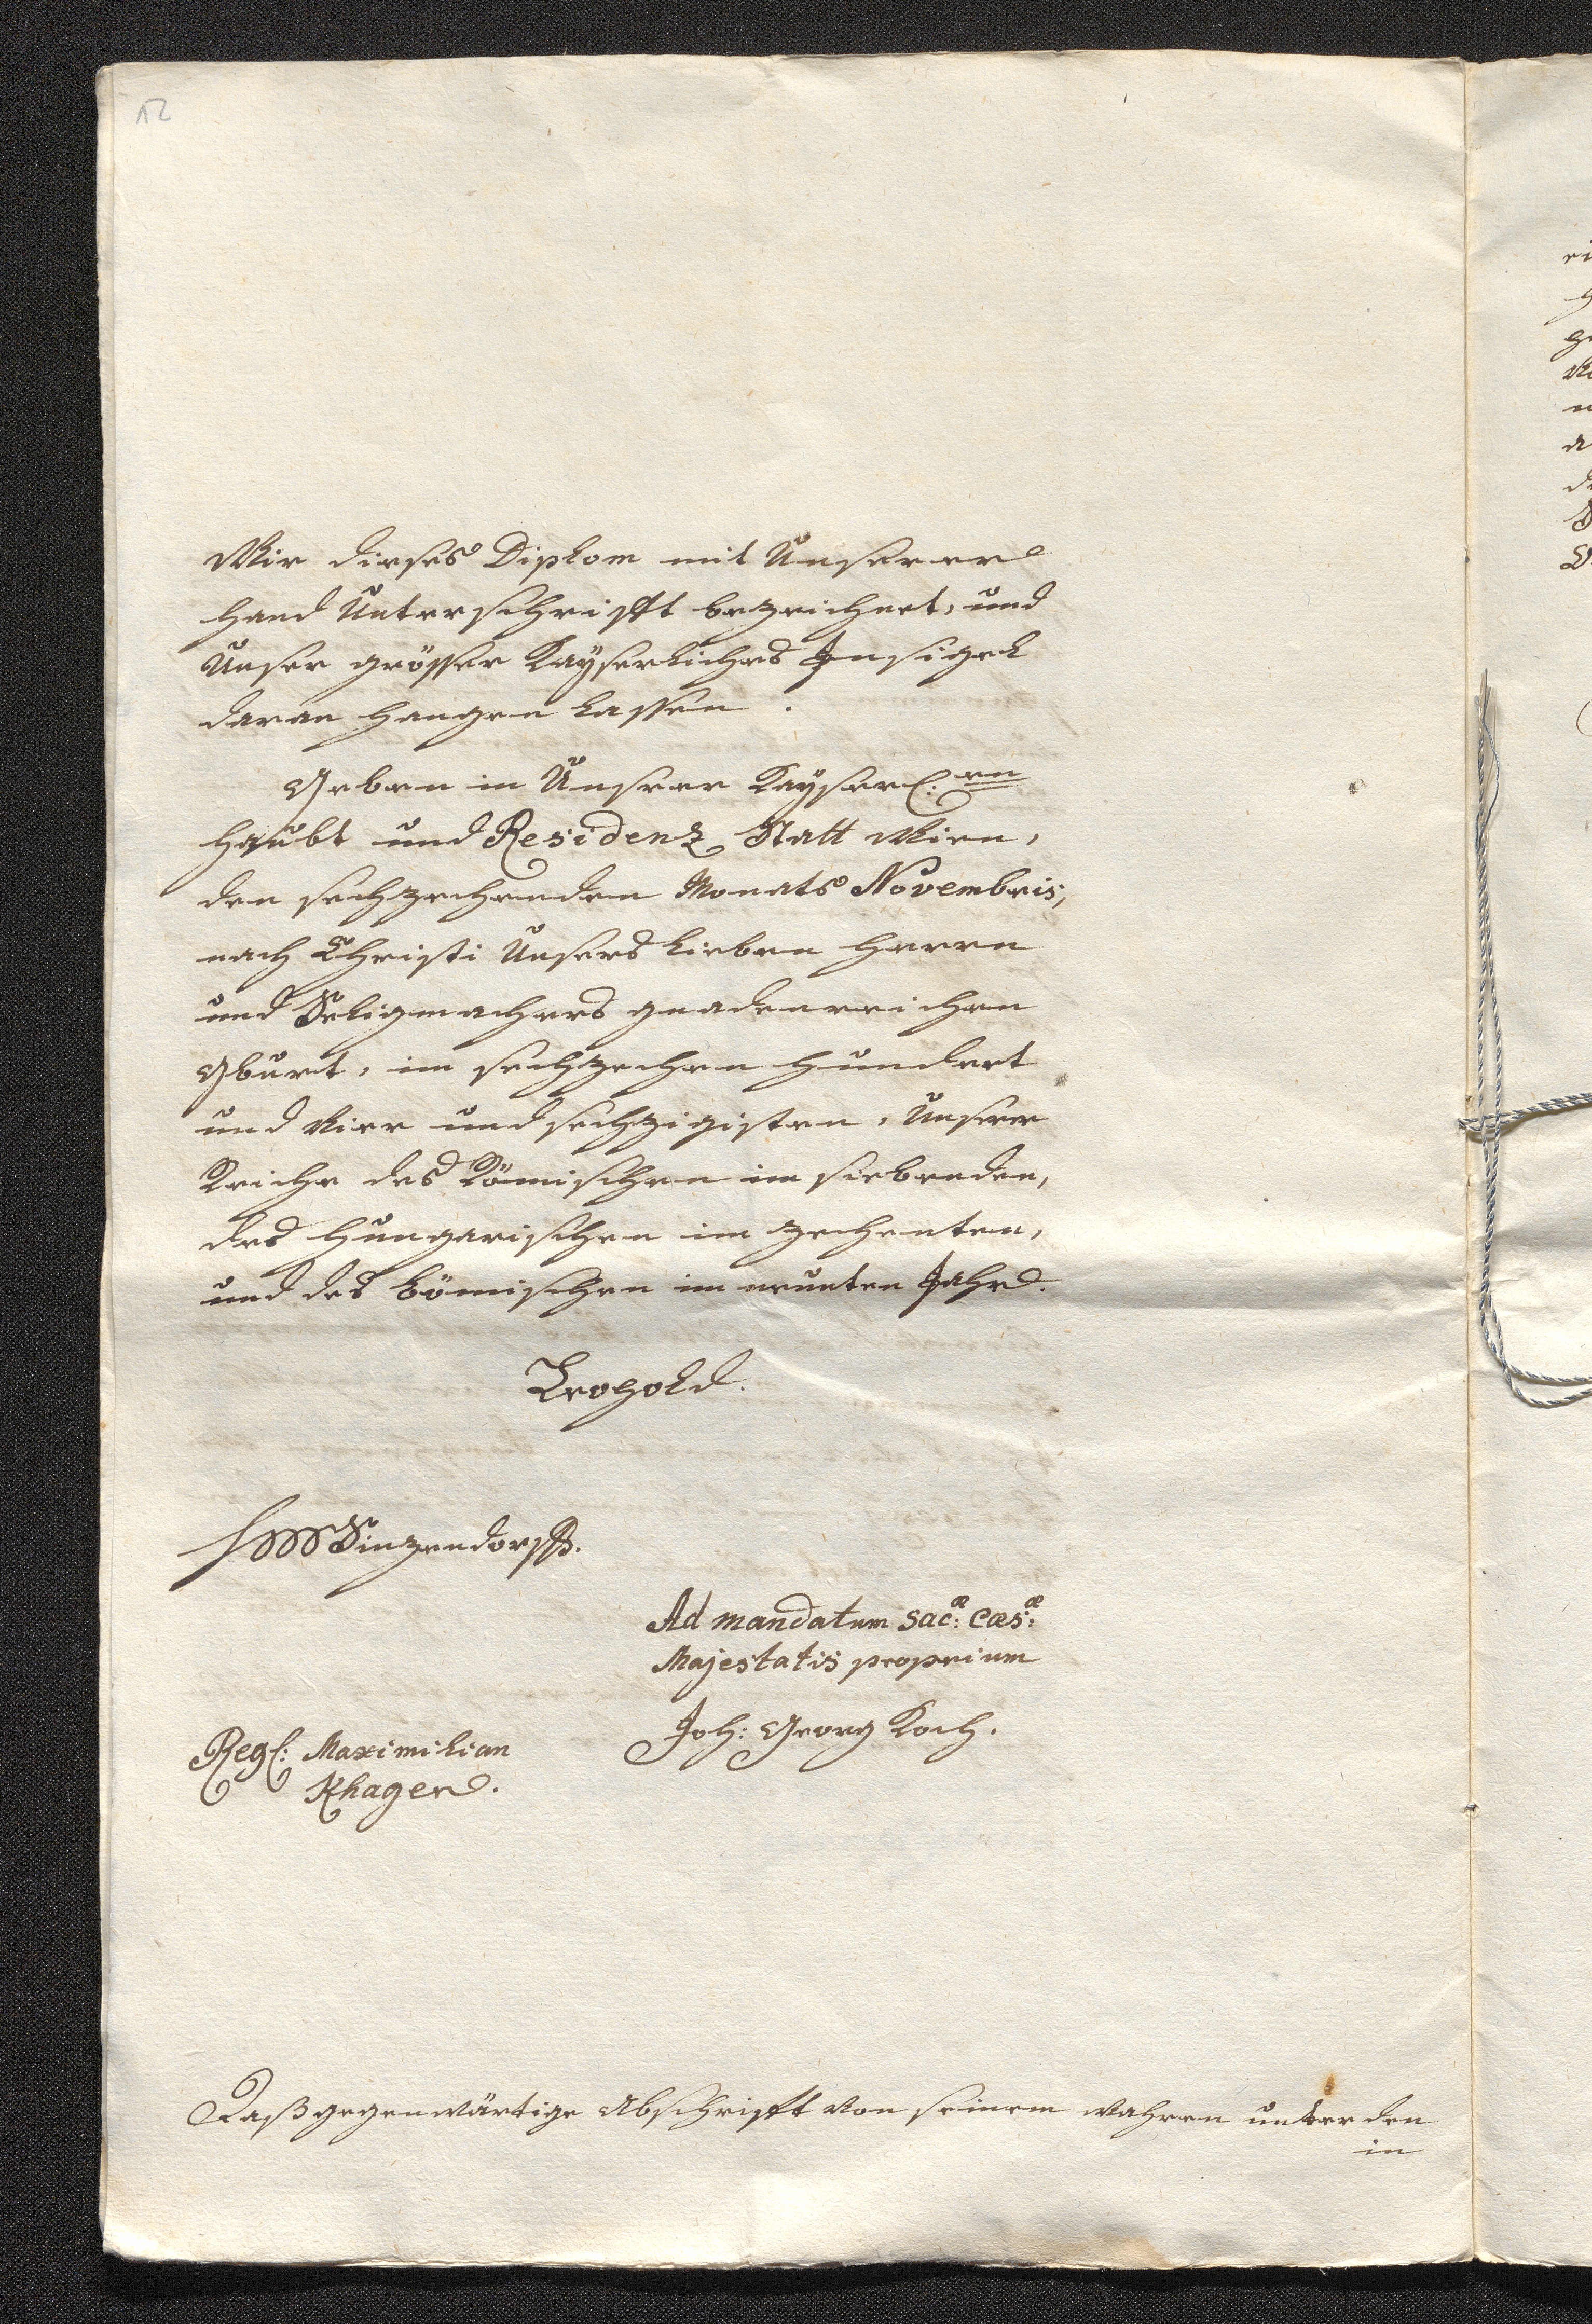 12
Wir dieses Diplom mit Unserer
Hand Unterschrifft bezeichnet, und
Unser grösser Kayserliches Insigel
daran hangen lassen.
Geben in Unserer Kayserl:en
Haubt und Residenz Statt Wien,
den sechzehenden Monats Novembris,
nach Christi Unsers lieben Herren
und Seligmachers gnadenreichen
Gburt, im sechzehen hundert
und vier und sechzigisten, Unserer
Reiche des Römischen im siebenden,
des Hungarischen im zehenten,
und des Bömischen im neunten Jahr.
Leopold.
Sinzendorff.
Ad mandatum Sac:æ Cæs:æ
Majestatis proprium
Joh: Georg Koch.
Regl: Maximilian
Khager.
Daß gegenwärtige Abschrifft von seinem wahren unter den
in